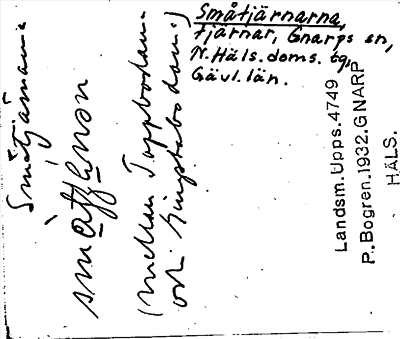 Småtjärnarna,
tjärnar, Gnarps sn,
N. Häls. doms. tg,
Gävl. län.
Småtjärnarna
(mellan Toppbodarn-
och
Landsm. Upps. 4749
P. Bogren. 1932. GNARP
HÄLS.